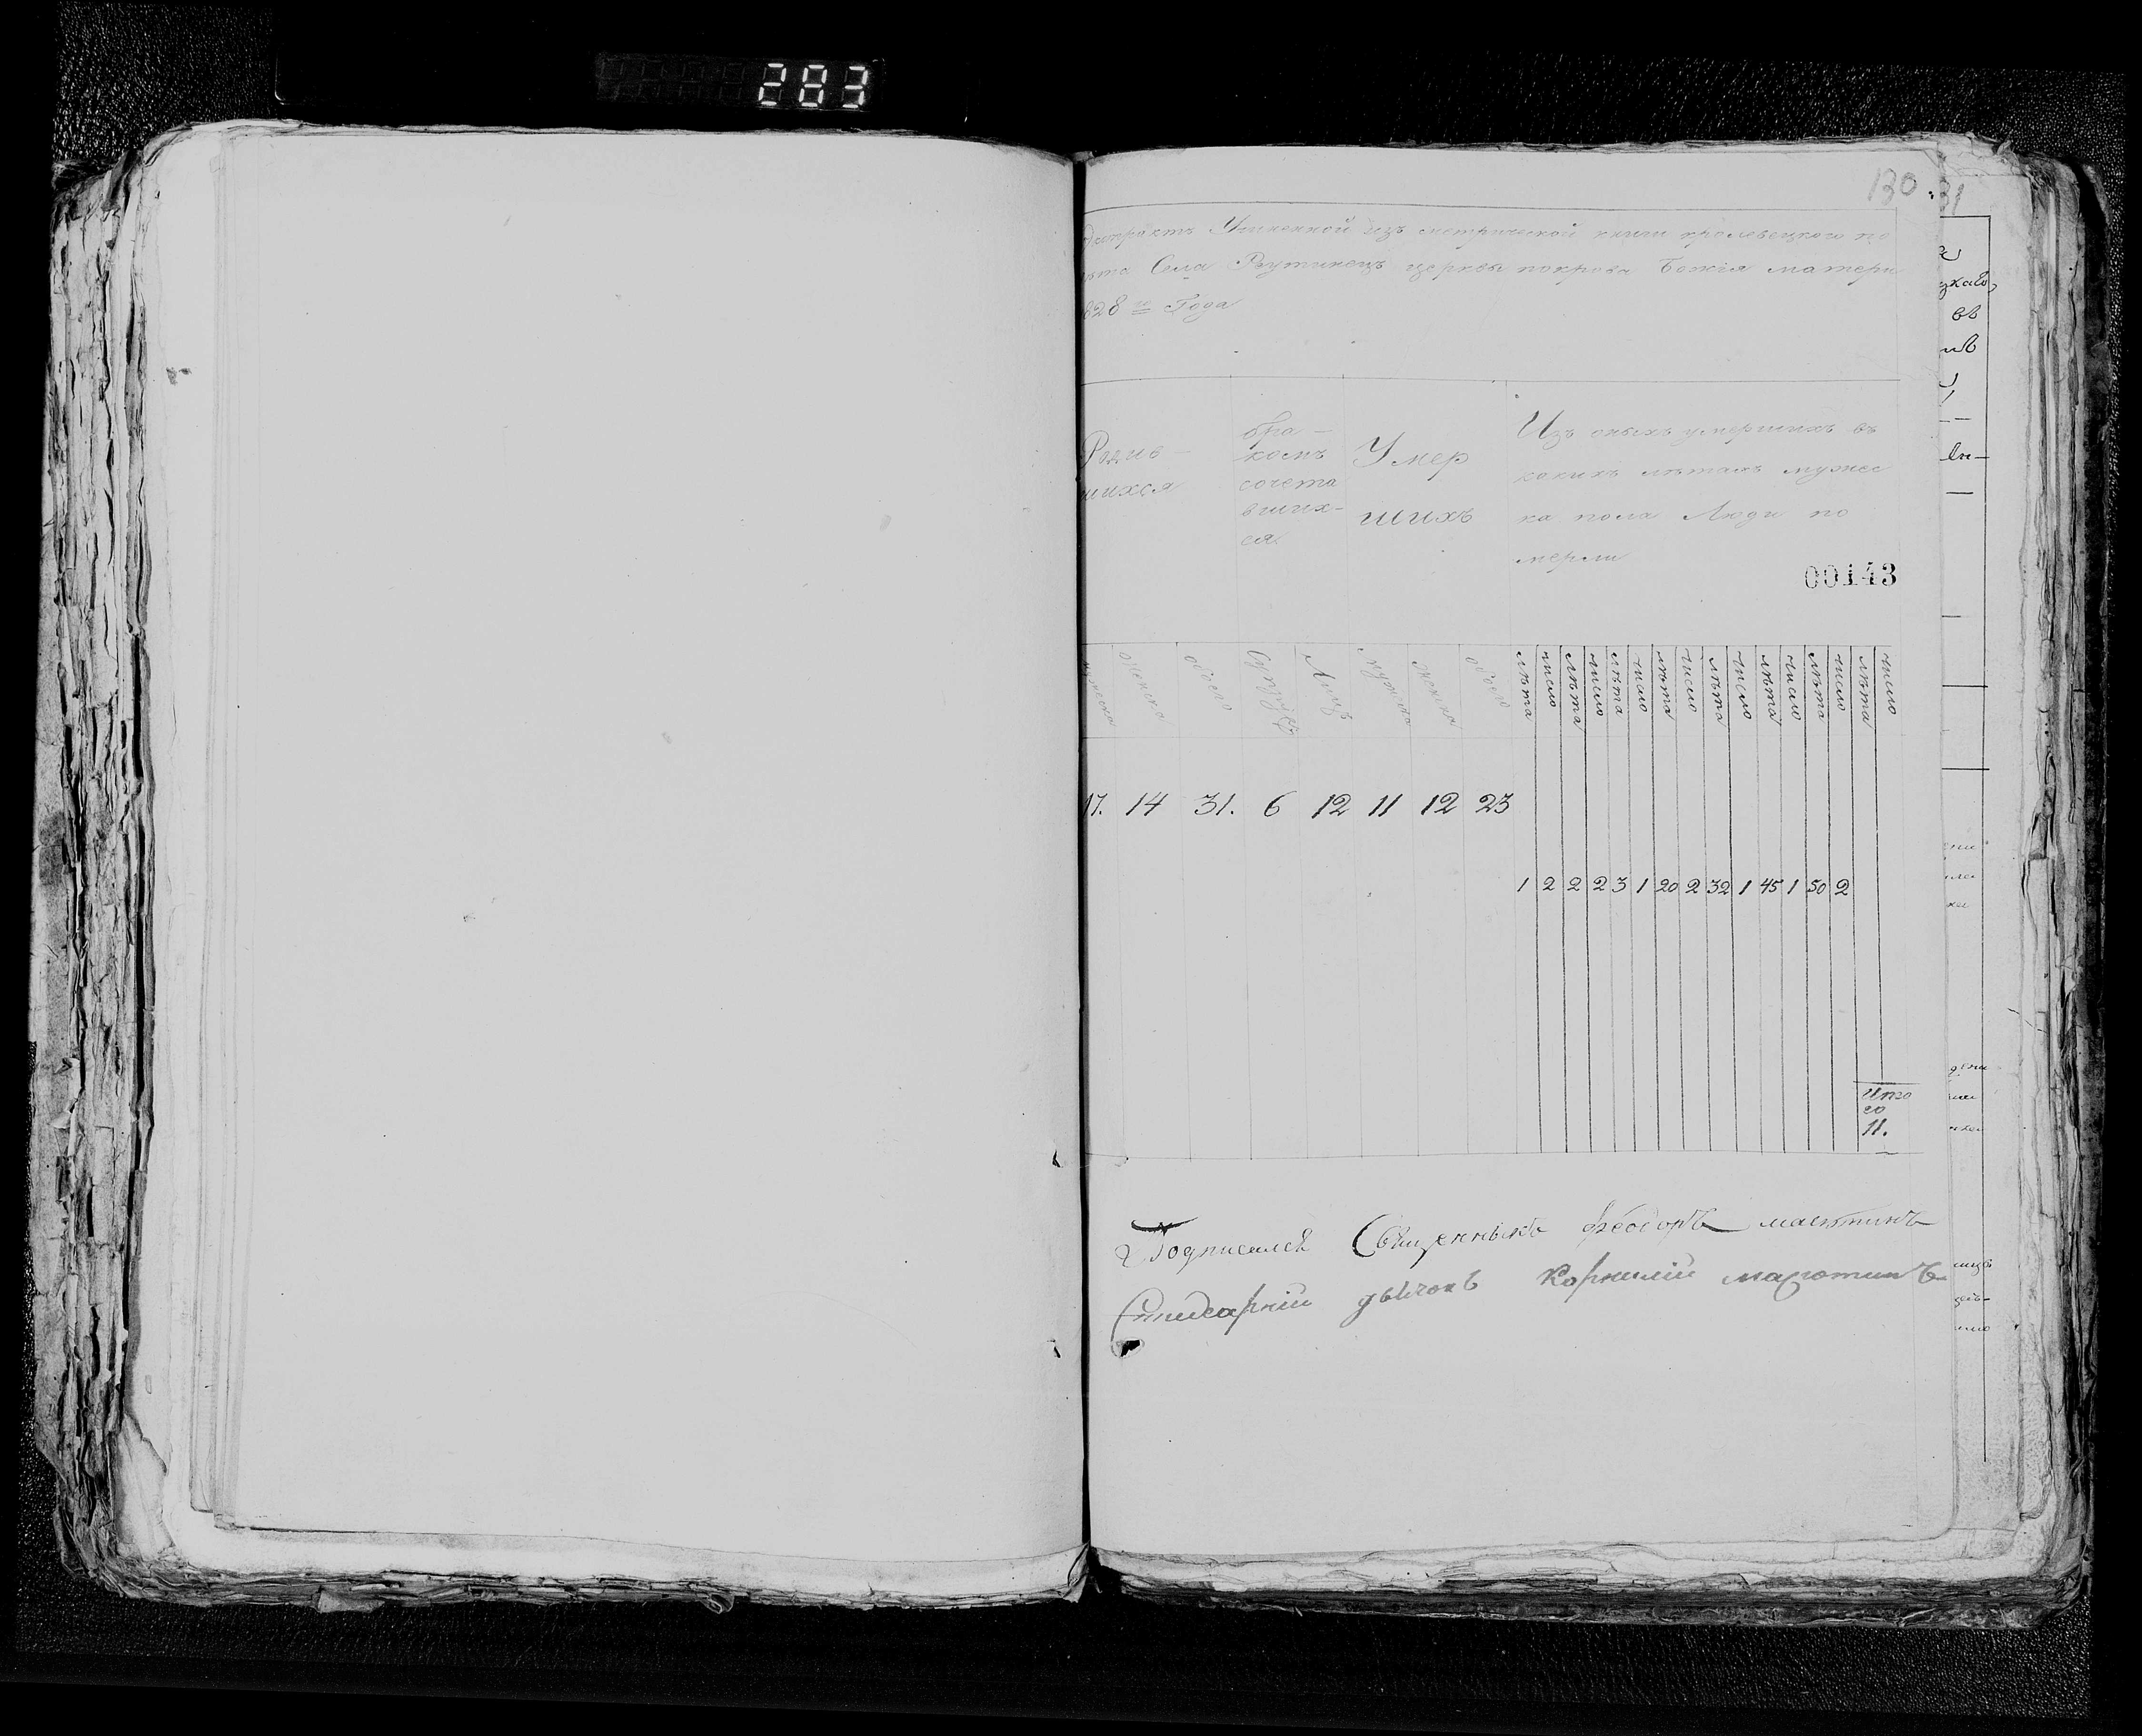 283
130
31
Экстрактъ Учиненной изъ метрической книги кролевецкого по
вѣта Села Реутинецъ церкви покрова Божія матери
1828 го Года
Родив-
шихся
бра-
комъ
сочета
вших-
ся
Умер
шихъ
Изъ оныхъ умершихъ въ
какихъ лѣтахъ мужес
ка пола Люди по
мерли
00143
мужеска женска обоего Супруг Лицъ мужеска женска обоего лѣта число лѣта число лѣта число лѣта число лѣта число лѣта число лѣта число лѣта число
17. 14 31. 6 12 11 12 23
1 2 2 2 3 1 20 2 32 1 45 1 50 2
Ито
го
11.
Подписался Священникъ Феодоръ масютинъ
дьячокъ Корнилий масютинъ